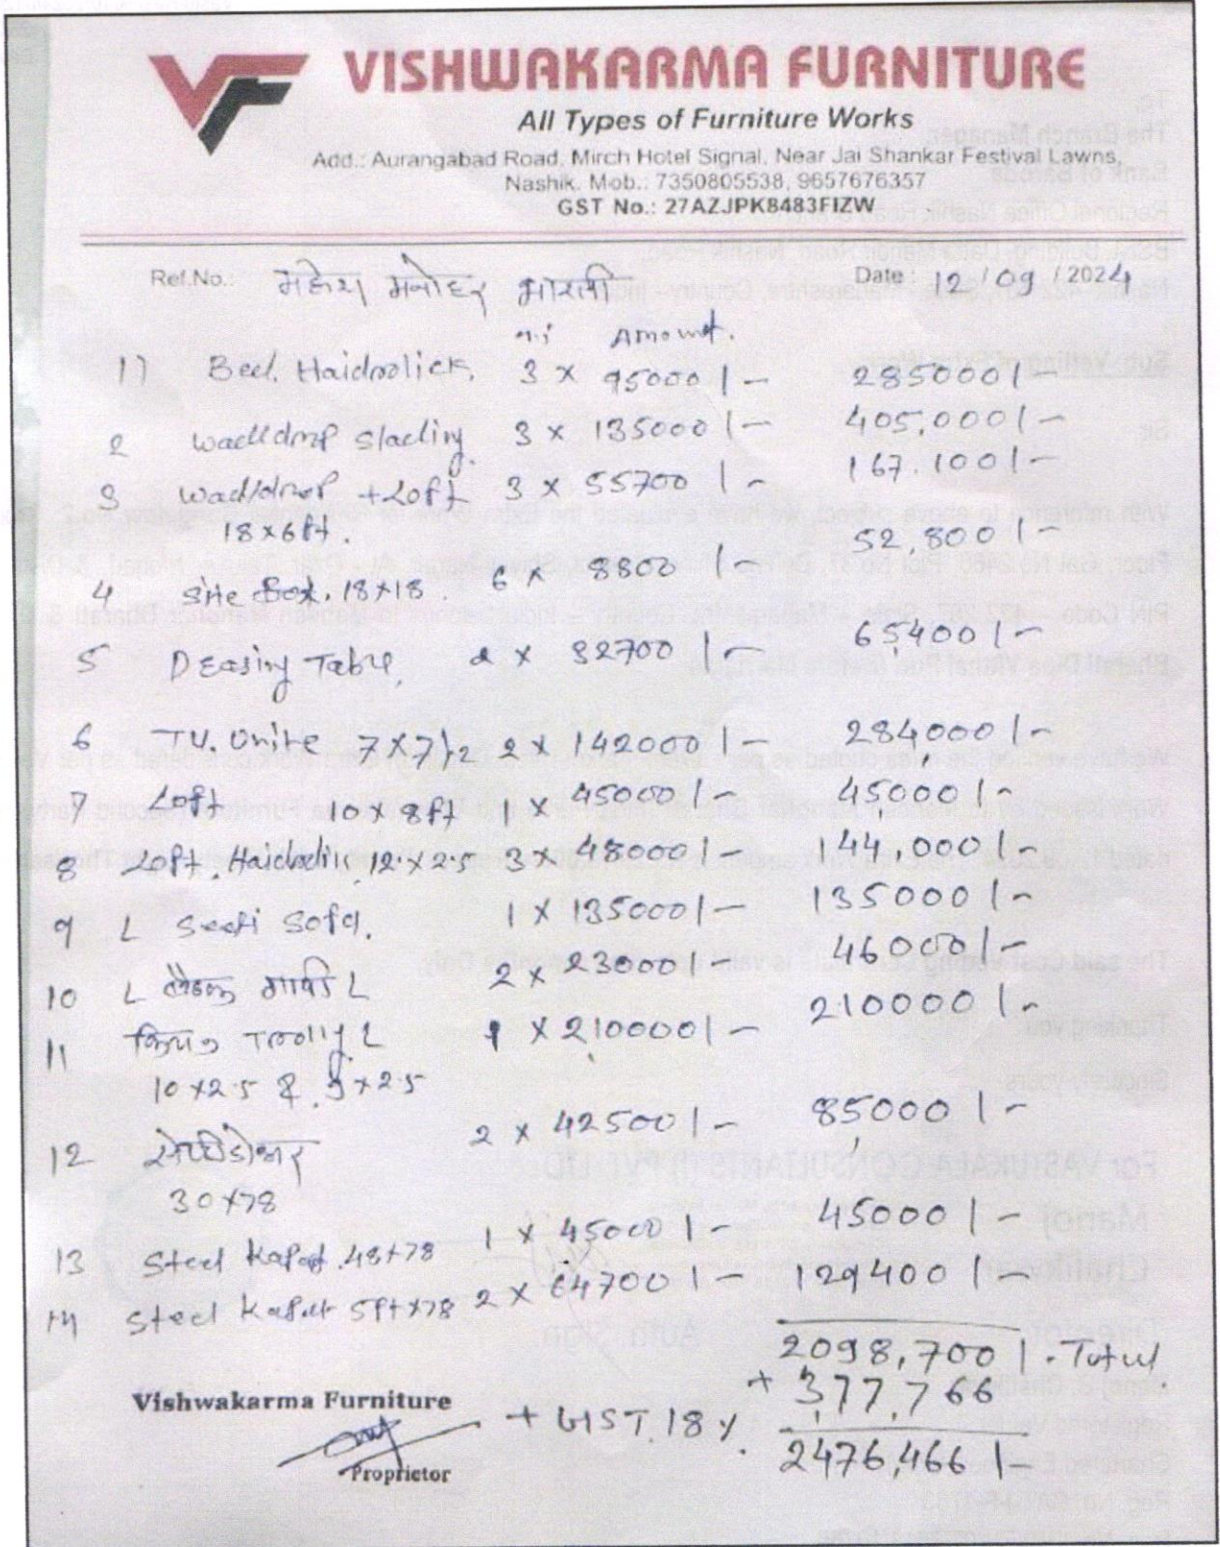 VF VISHWAKARMA FURNITURE
All Types of Furniture Works
Add.: Aurangabad Road, Mirch Hotel Signal, Near Jai Shankar Festival Lawns,
Nashik. Mob.: 7350805538, 9657676357
GST No.: 27AZJPK8483FIZW
Ref.No.: महेश मनोहर भारती Date: 12/09/2024
Amount.
1) Bed. Haidrolick. 3 x 95000/- 285000/-
2 Walldrop slading 3 x 135000/- 405,000/-
3 Walldrop + Loft 3 x 55700/- 167,100/-
18x6ft.
4 Site Box. 18x18. 6 x 8800/- 52,800/-
5 Deasing Table, 2 x 32700/- 65,400/-
6 T.V. Unite 7x7½ 2 x 142000/- 284,000/-
7 Loft 10x8ft 1 x 45000/- 45,000/-
8 Loft. Haidrolic 12x2.5 3 x 48000/- 144,000/-
9 L Seati Sofa. 1 x 135000/- 135000/-
10 L बैठक L 2 x 23000/- 46000/-
11 Trolly L 1 x 210000/- 210000/-
10x2.5 & 9x2.5
12 सेफ्टीडोअर 2 x 42500/- 85,000/-
30x78
13 Steel Kapat. 48x78 1 x 45000/- 45000/-
14 Steel Kapat 5ft x78 2 x 64700/- 129400/-
2098,700/. Total
+ 3,77,766
Vishwakarma Furniture + GST. 18%.
2476,466/-
Proprietor